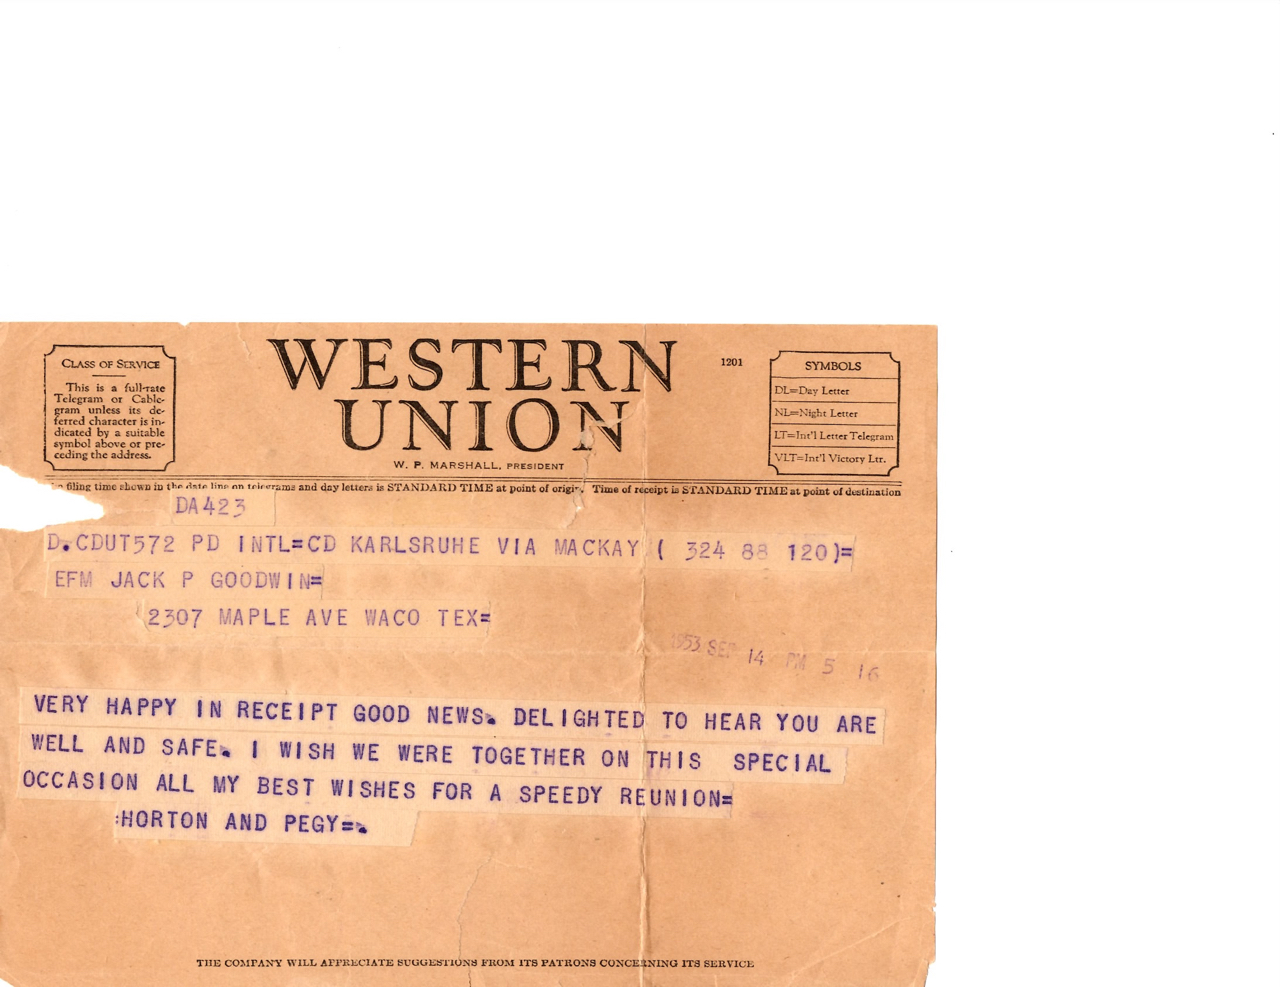 WESTERN
UNION
1201
W. P. MARSHALL, PRESIDENT
CLASS OF SERVICE
This is a full-rate
Telegram or Cable-
gram unless its de-
ferred character is in-
dicated by a suitable
symbol above or pre-
ceding the address.
SYMBOLS
DL=Day Letter
NL=Night Letter
LT=Int'l Letter Telegram
VLT=Int'l Victory Ltr.
filing time shown in the date line on telegrams and day letters is STANDARD TIME at point of origin. Time of receipt is STANDARD TIME at point of destination
DA423
D.CDUT572 PD INTL=CD KARLSRUHE VIA MACKAY ( 324 88 120)=
EFM JACK P GOODWIN=
2307 MAPLE AVE WACO TEX=
1953 SEP 14 PM 5 16
VERY HAPPY IN RECEIPT GOOD NEWS. DELIGHTED TO HEAR YOU ARE
WELL AND SAFE. I WISH WE WERE TOGETHER ON THIS SPECIAL
OCCASION ALL MY BEST WISHES FOR A SPEEDY REUNION=
:HORTON AND PEGY=.
THE COMPANY WILL APPRECIATE SUGGESTIONS FROM ITS PATRONS CONCERNING ITS SERVICE